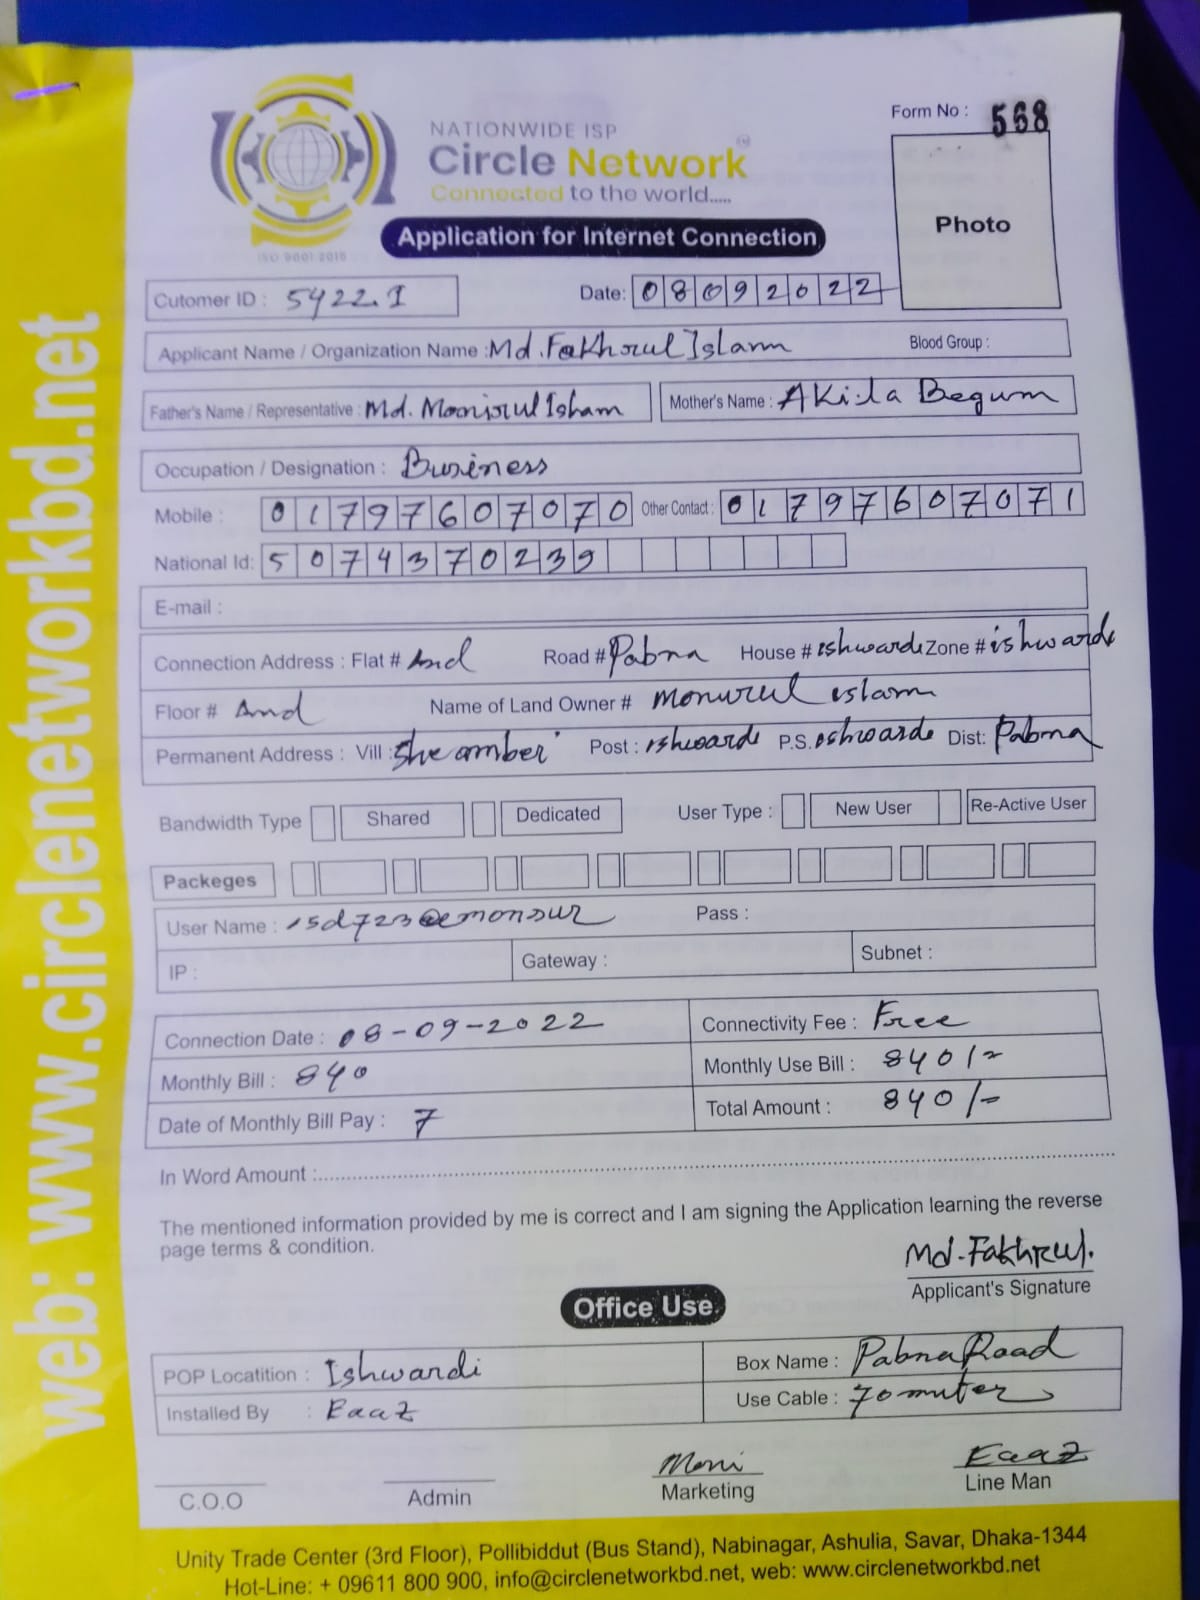 Form No : 568
NATIONWIDE ISP
Circle Network
Connected to the world.....
Photo
Application for Internet Connection
ISO 9001 2015
Cutomer ID : 5422.I
Date: 08092022
Applicant Name / Organization Name : Md. Fakhrul Islam Blood Group :
Father's Name / Representative : Md. Monirul Islam Mother's Name : AKila Begum
Occupation / Designation : Business
Mobile : 01797607070 Other Contact : 01797607071
National Id: 5074370239
E-mail :
Connection Address : Flat # And Road # Pabna House # ishwardi Zone # ishwardi
Floor # And Name of Land Owner # monurul islam
Permanent Address : Vill : She amber Post : ishwardi P.S. ishwardi Dist: Pabna
Bandwidth Type Shared Dedicated User Type : New User Re-Active User
Packeges
User Name : isd723@emonsur Pass :
IP : Gateway : Subnet :
Connection Date : 08-09-2022 Connectivity Fee : Free
Monthly Bill : 840 Monthly Use Bill : 840/-
Date of Monthly Bill Pay : 7 Total Amount : 840/-
In Word Amount :
The mentioned information provided by me is correct and I am signing the Application learning the reverse
page terms & condition.
Md. Fakhrul.
Applicant's Signature
Office Use
POP Locatition : Ishwardi Box Name : Pabna Road
Installed By : Eaaz Use Cable : 70 muter
Moni Eaaz
C.O.O Admin Marketing Line Man
Unity Trade Center (3rd Floor), Pollibiddut (Bus Stand), Nabinagar, Ashulia, Savar, Dhaka-1344
Hot-Line: + 09611 800 900, info@circlenetworkbd.net, web: www.circlenetworkbd.net
web: www.circlenetworkbd.net